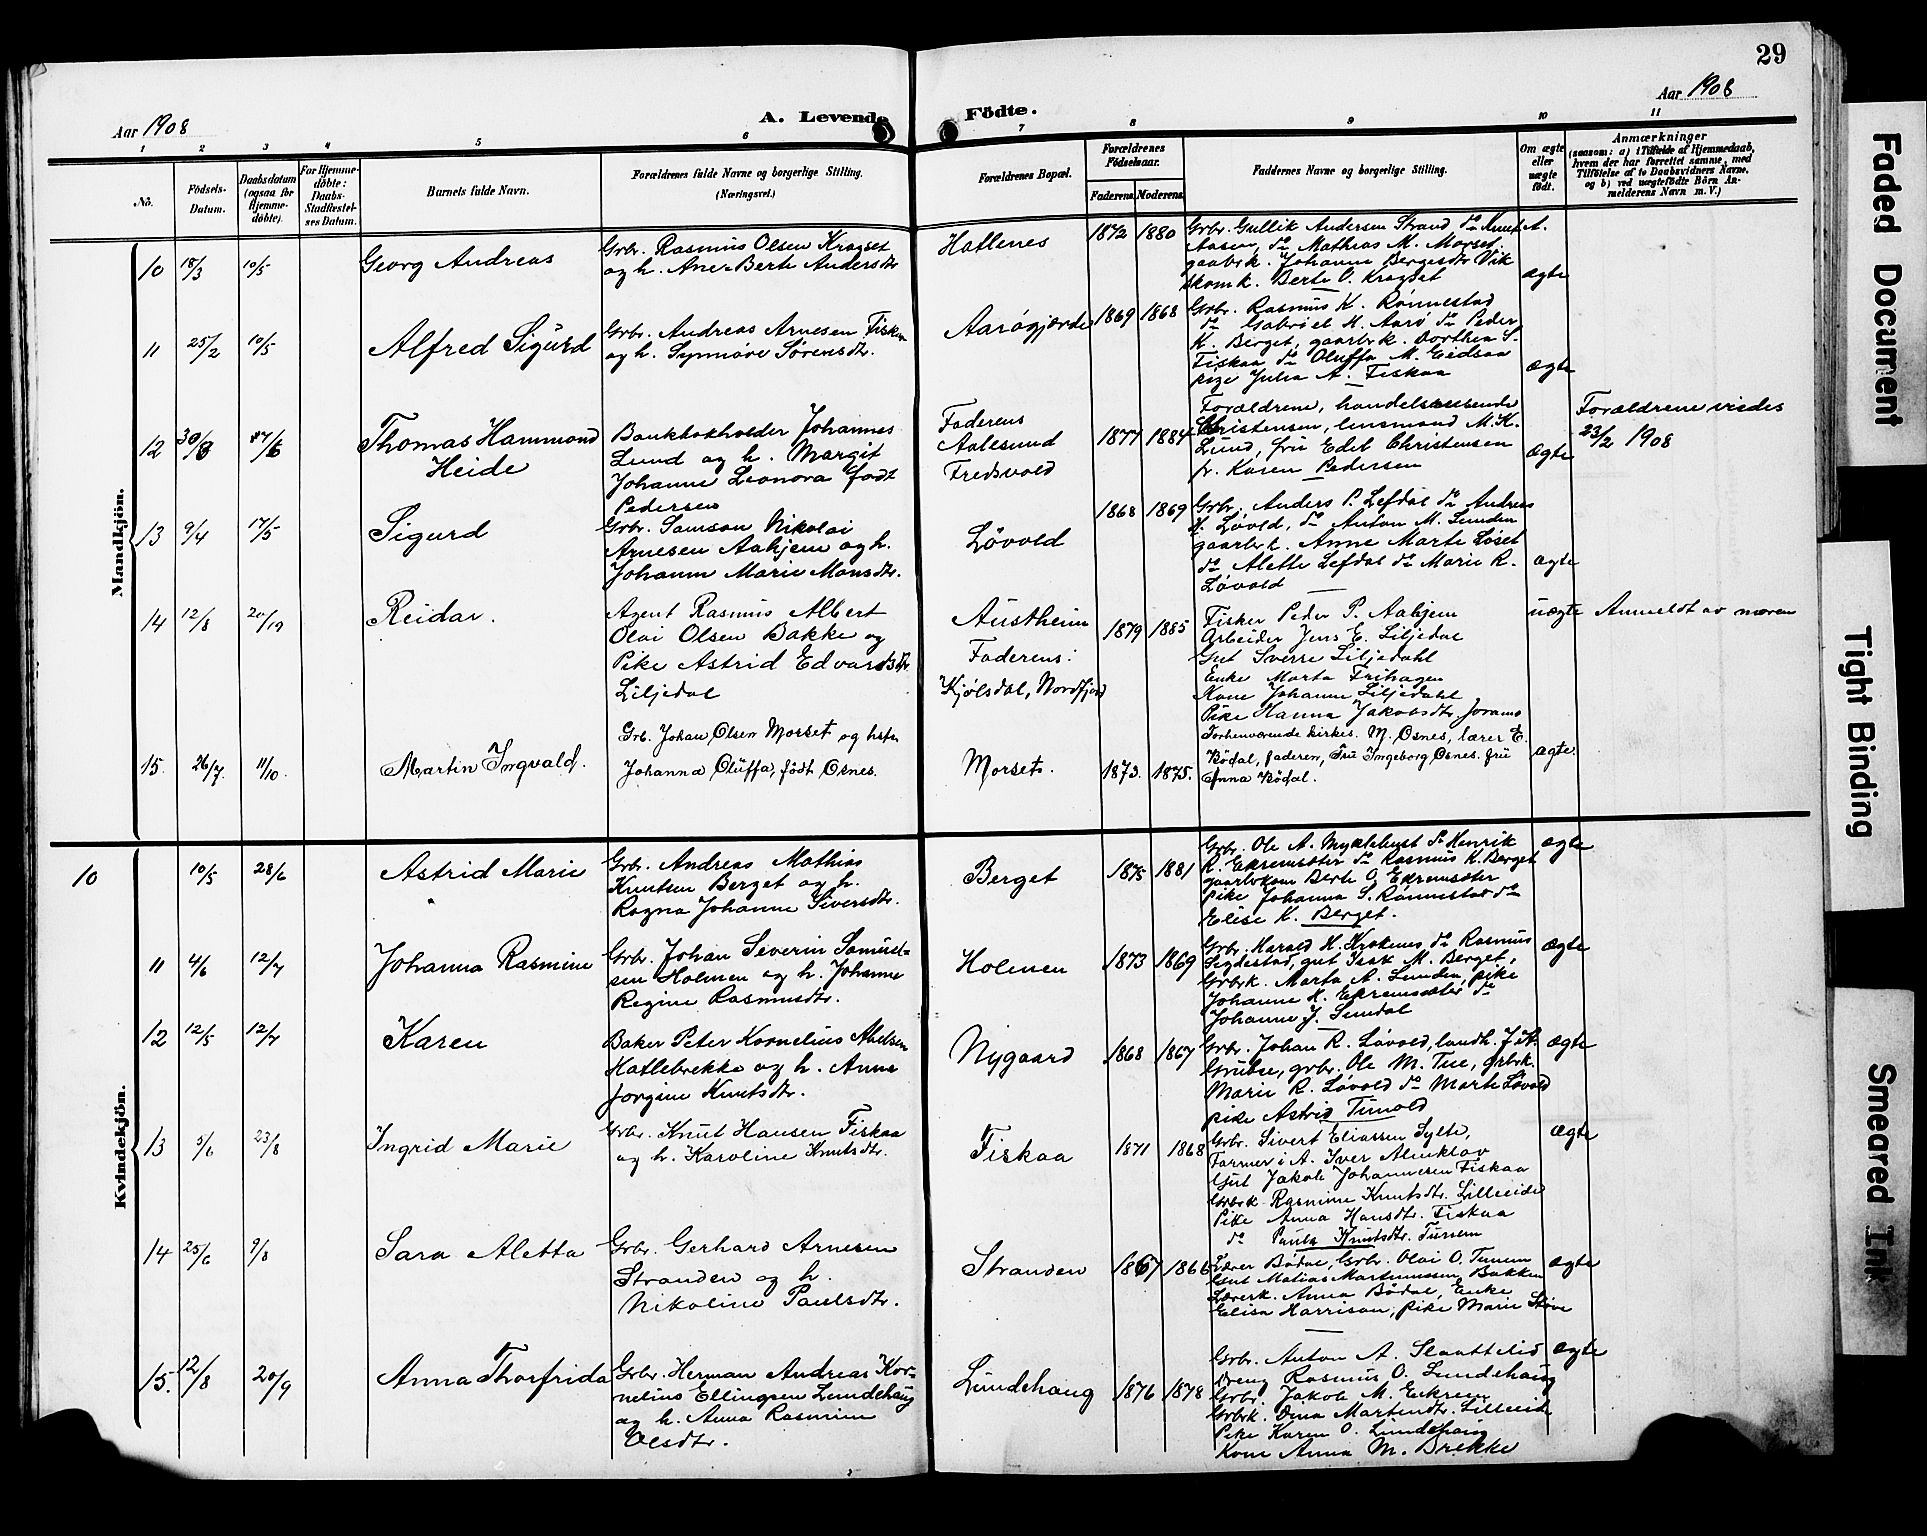 29
Aar 1908
A. Levende Födte.
Aar 1908
1 2 3 4 5 6 7 8 9 10 11
No.
Födsels-Datum.
Daabsdatum (ogsaa for Hjemmedöbte).
For Hjemmedöbte: Daabs-Stadfestelses Datum.
Barnets fulde Navn.
Forældrenes fulde Navne og borgerlige Stilling. (Næringsvei.)
Forældrenes Bopæl.
Forældrenes Födselsaar.
Faderens. Moderens.
Faddernes Navne og borgerlige Stilling.
Om ægte eller uægte födt.
Anmærkninger
(saasom: a) i Tilfælde af Hjemmedaab, hvem der har forrettet samme, med Tilföielse af to Daabsvidners Navne, og b) ved uægtefödte Börn Anmelderens Navn m. V.)
Mandkjön.
10 18/3 10/5 Georg Andreas
Grbr. Rasmus Olsen Kragset
og h. Ane Berte Andersdtr
Hatlenes 1872 1880
Grbr. Gullik Andersen Strand, do Knut A.
Aasen, do Mathias M. Morset,
gaardbrk. Johanne Bergesdtr Vik
Berte O. Kragset
ægte
11 25/2 10/5 Alfred Sigurd
Grbr. Andreas Arnesen Fiskaa
og h. Synnøve Sørensdtr.
Aarøgjerde 1869 1868
Grbr. Rasmus K. Rønnestad
do Gabriel H. Aarø do Peder
K. Berget, gaarbrk. Dorthea S.
Fiskaa do Oluffa M. Eidsaa
pige Julia A. Fiskaa
ægte
12 30/3 17/6 Thomas Hammond
Heide
Bankbokholder Johannes
Lund og h. Margit
Johanne Leonora født
Pedersen
Faderens
Aalesund
Fredsvold
1877 1884
Forældrene, handelsreisende
Christensen, lensmand M. K.
Lund, fru Edel Christensen
fr. Karen Pedersen
ægte
Forældrene viedes
23/2 1908
13 9/4 17/5 Sigurd
Grbr. Samson Nikolai
Arnesen Aahjem og h.
Johanne Marie Monsdtr.
Løvold 1868 1869
Grbr. Anders P. Lefdal do Andreas
H. Løvold, do Anton M. Lunden
gaarbrk. Anne Marte Løset
do Alette Lefdal do Marie R.
Løvold
ægte
14 12/8 20/19 Reidar.
Agent Rasmus Albert
Olai Olsen Bakke og
Pike Astrid Edvardsdtr
Liljedal
Austheim
Faderens:
Kjølsdal, Nordfjord
1879 1885
Fisker Peder P. Aahjem
Arbeider Jens E. Liljedal
Gut Sverre Liljedahl
Enke Marta Frihagen
Kone Johanne Liljedahl
Pike Hanna Jakobsdtr. Joramo
uægte Anmeldt av moren
15. 26/7 11/10. Martin Ingvald.
Grb. Johan Olsen Morset og hstr
Johanna Oluffa, født Osnes.
Morset. 1873. 1875.
Forhenværende kirkes. M. Osnes, lærer E.
Bödal, faderen, Fru Ingeborg Osnes. fru
Anna Bödal.
ægte.
Kvindekjön.
10 10/5 28/6 Astrid Marie
Grbr. Andreas Mathias
Knutsen Berget og h.
Ragna Johanne Siversdtr.
Berget 1875 1881
Grbr. Ole A. Myklebust do Henrik
R. Ekremsæter do Rasmus K. Berget
gaarbrkone Berte O. Ekremsæter
pike Johanna S. Rønnestad do
Elise K. Berget.
ægte
11 4/6 12/7 Johanna Rasmine
Grbr. Johan Severin Samuel-
sen Holmen og h. Johanne
Regine Rasmusdtr.
Holmen 1873 1869
Grbr. Harald H. Krokenes do Rasmus
Segdestad, gut Isak M. Berget,
Grbrk. Marta A. Lunden, pike
Johanne H. Ekremsæter do
Johanne J. Sundal
ægte
12 12/5 12/7 Karen
Baker Peter Kornelius Abelsen
Hatlebrekke og h. Anne
Jorgine Knutsdtr.
Nygaard 1868 1867
Grbr. Johan R. Løvold, landh. J. K.
Grubse, grbr. Ole M. Tue, grbrk.
Marie R. Løvold do Marte Løvold
pike Astrid Tunold
ægte
13 3/6 23/8 Ingrid Marie
Grbr. Knut Hansen Fiskaa
og h. Karoline Knutsdtr.
Fiskaa 1871 1868
Grbr. Sivert Eliassen Sylte,
Farmer i A. Iver Almklov
Gut Jakob Johannesen Fiskaa
Grbrk Rasmine Knutsdtr. Lilleeide
Pike Anna Hansdtr. Fiskaa
do Paula Knutsdtr. Tunem
ægte
14 25/6 9/8 Sara Aletta
Grbr. Gerhard Arnesen
Stranden og h.
Nikoline Paulsdtr.
Stranden 1867 1866
Lærer Bödal, Grbr. Olai O. Tunem
Gut Matias Martinussen Bakken
Lærerk. Anna Bödal, Enke
Elisa Harrison, pike Marie Støve
ægte
15. 12/8 20/9 Anna Thorfrida
Grbr. Herman Andreas Kor-
nelius Ellingsen Lundehaug
og h. Anna Rasmine
Olsdtr.
Lundehaug 1876 1878
Grbr. Anton A. Slaattelid
Dreng Rasmus O. Lundehaug
Grbr. Jakob M. Ekrem
Grbrk. Oma Martindtr. Lilleeide
Pike Karen O. Lundehaug
Kone Anna M. Brekke
ægte
Faded Document
Tight Binding
Smeared Ink